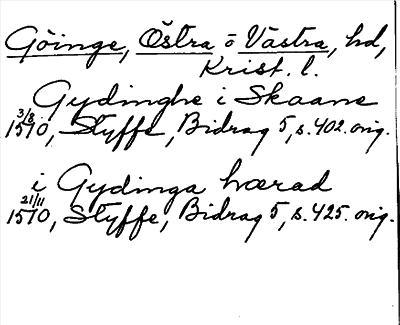 Göinge, Östra o Västra, hd,
Krist. l.
Gydinghe i Skaane
3/8 1510, Styffe, Bidrag 5, s. 402. orig.
i Gydinga hærad
21/11 1510, Styffe, Bidrag 5, s. 425. orig.